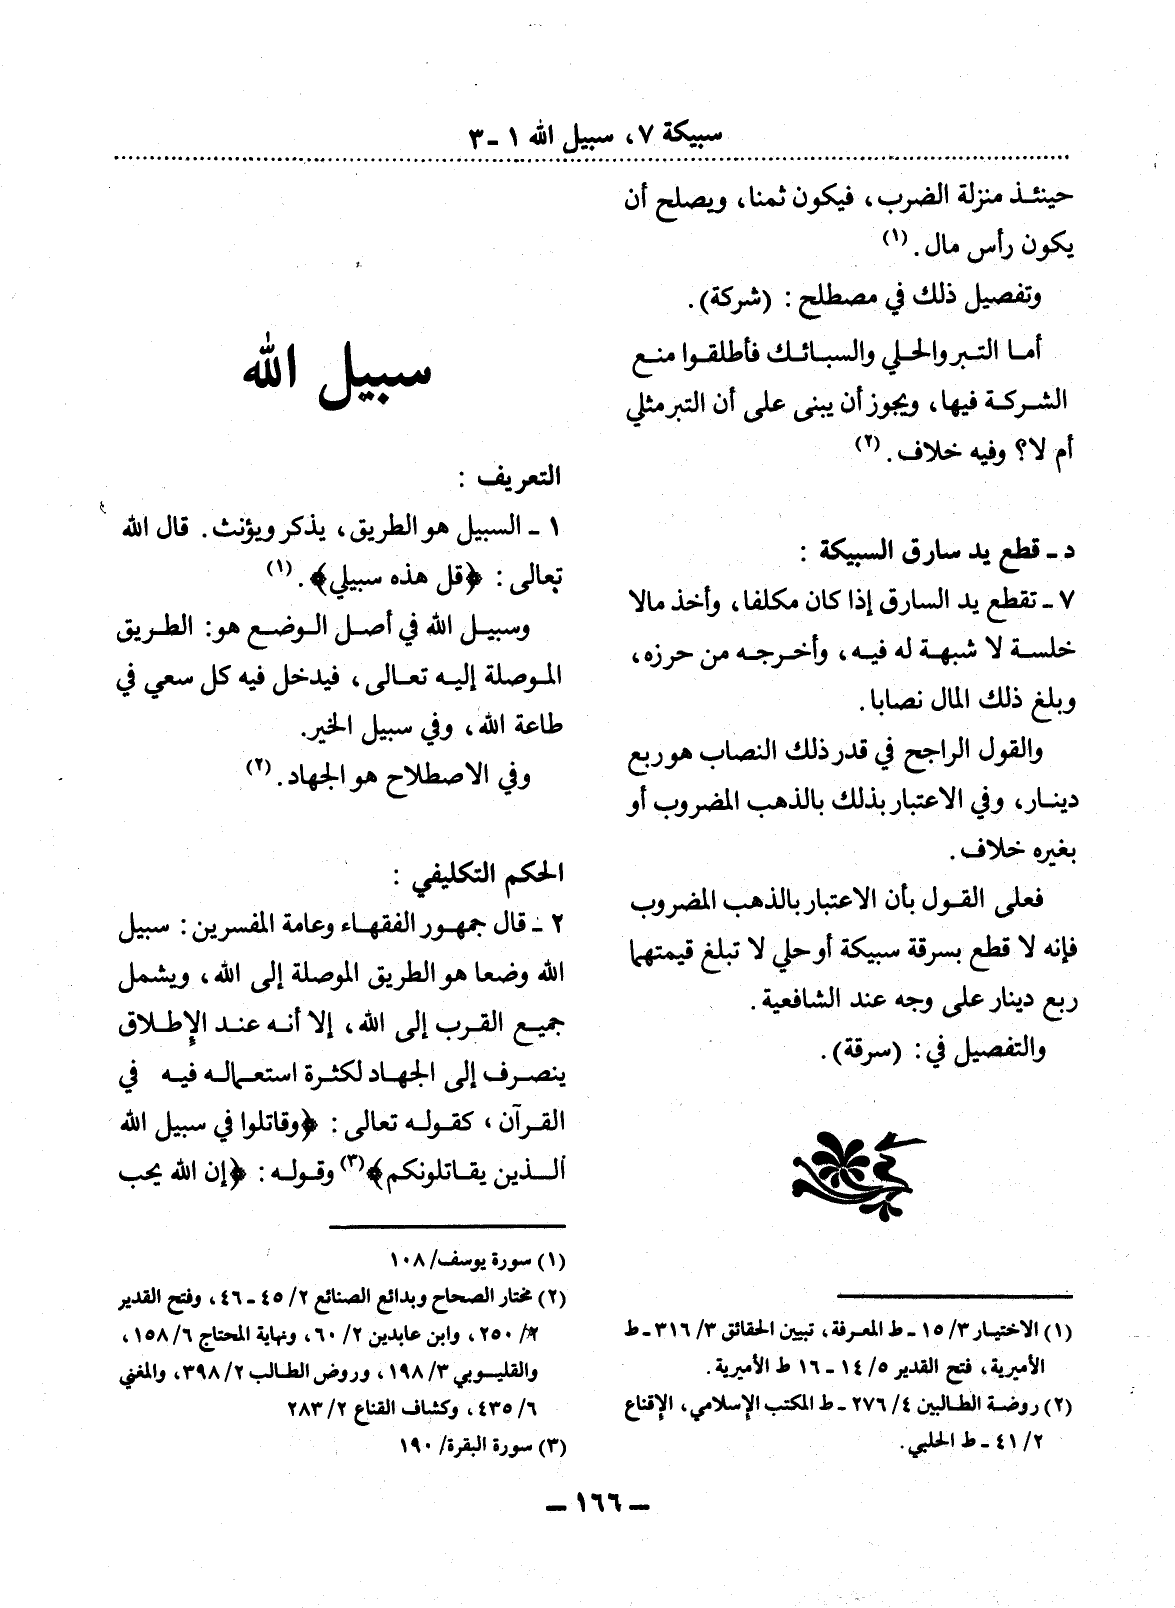 سبيكة ٧، سبيل الله ١ -٣
حينئذ منزلة الضرب، فيكون ثمنا، ويصلح أن
يكون رأس مال. (١)
وتفصيل ذلك في مصطلح : (شركة).
أما التبر والحلي والسبائك فأطلقوا منع
الشركة فيها، ويجوز أن يبنى على أن التبر مثلي
أم لا؟ وفيه خلاف. (٢)
د ـ قطع يد سارق السبيكة :
٧ ـ تقطع يد السارق إذا كان مكلفا، وأخذ مالا
خلسة لا شبهة له فيه، وأخرجه من حرزه،
وبلغ ذلك المال نصابا.
والقول الراجح في قدر ذلك النصاب هو ربع
دينار، وفي الاعتبار بذلك بالذهب المضروب أو
بغيره خلاف.
فعلى القول بأن الاعتبار بالذهب المضروب
فإنه لا قطع بسرقة سبيكة أو حلي لا تبلغ قيمتهما
ربع دينار على وجه عند الشافعية.
والتفصيل في: (سرقة).
(١) الاختيار ٣/ ١٥ ـ ط المعرفة، تبيين الحقائق ٣/ ٣١٦ ـ ط
الأميرية، فتح القدير ٥/ ١٤ ـ ١٦ ط الأميرية.
(٢) روضة الطالبين ٤/ ٢٧٦ ـ ط المكتب الإسلامي، الإقناع
٢/ ٤١ ـ ط الحلبي.
سبيل الله
التعريف :
١ ـ السبيل هو الطريق، يذكر ويؤنث. قال الله
تعالى : ﴿قل هذه سبيلي﴾. (١)
وسبيل الله في أصل الوضع هو: الطريق
الموصلة إليه تعالى، فيدخل فيه كل سعي في
طاعة الله، وفي سبيل الخير.
وفي الاصطلاح هو الجهاد. (٢)
الحكم التكليفي :
٢ ـ قال جمهور الفقهاء وعامة المفسرين: سبيل
الله وضعا هو الطريق الموصلة إلى الله، ويشمل
جميع القرب إلى الله، إلا أنه عند الإطلاق
ينصرف إلى الجهاد لكثرة استعماله فيه في
القرآن، كقوله تعالى : ﴿وقاتلوا في سبيل الله
الذين يقاتلونكم﴾ (٣) وقوله : ﴿إن الله يحب
(١) سورة يوسف/ ١٠٨
(٢) مختار الصحاح وبدائع الصنائع ٢/ ٤٥ ـ ٤٦، وفتح القدير
٢/ ٢٥٠، وابن عابدين ٢/ ٦٠، ونهاية المحتاج ٦/ ١٥٨،
والقليوبي ٣/ ١٩٨، وروض الطالب ٢/ ٣٩٨، والمغني
٦/ ٤٣٥، وكشاف القناع ٢/ ٢٨٣
(٣) سورة البقرة/ ١٩٠
ـ ١٦٦ ـ